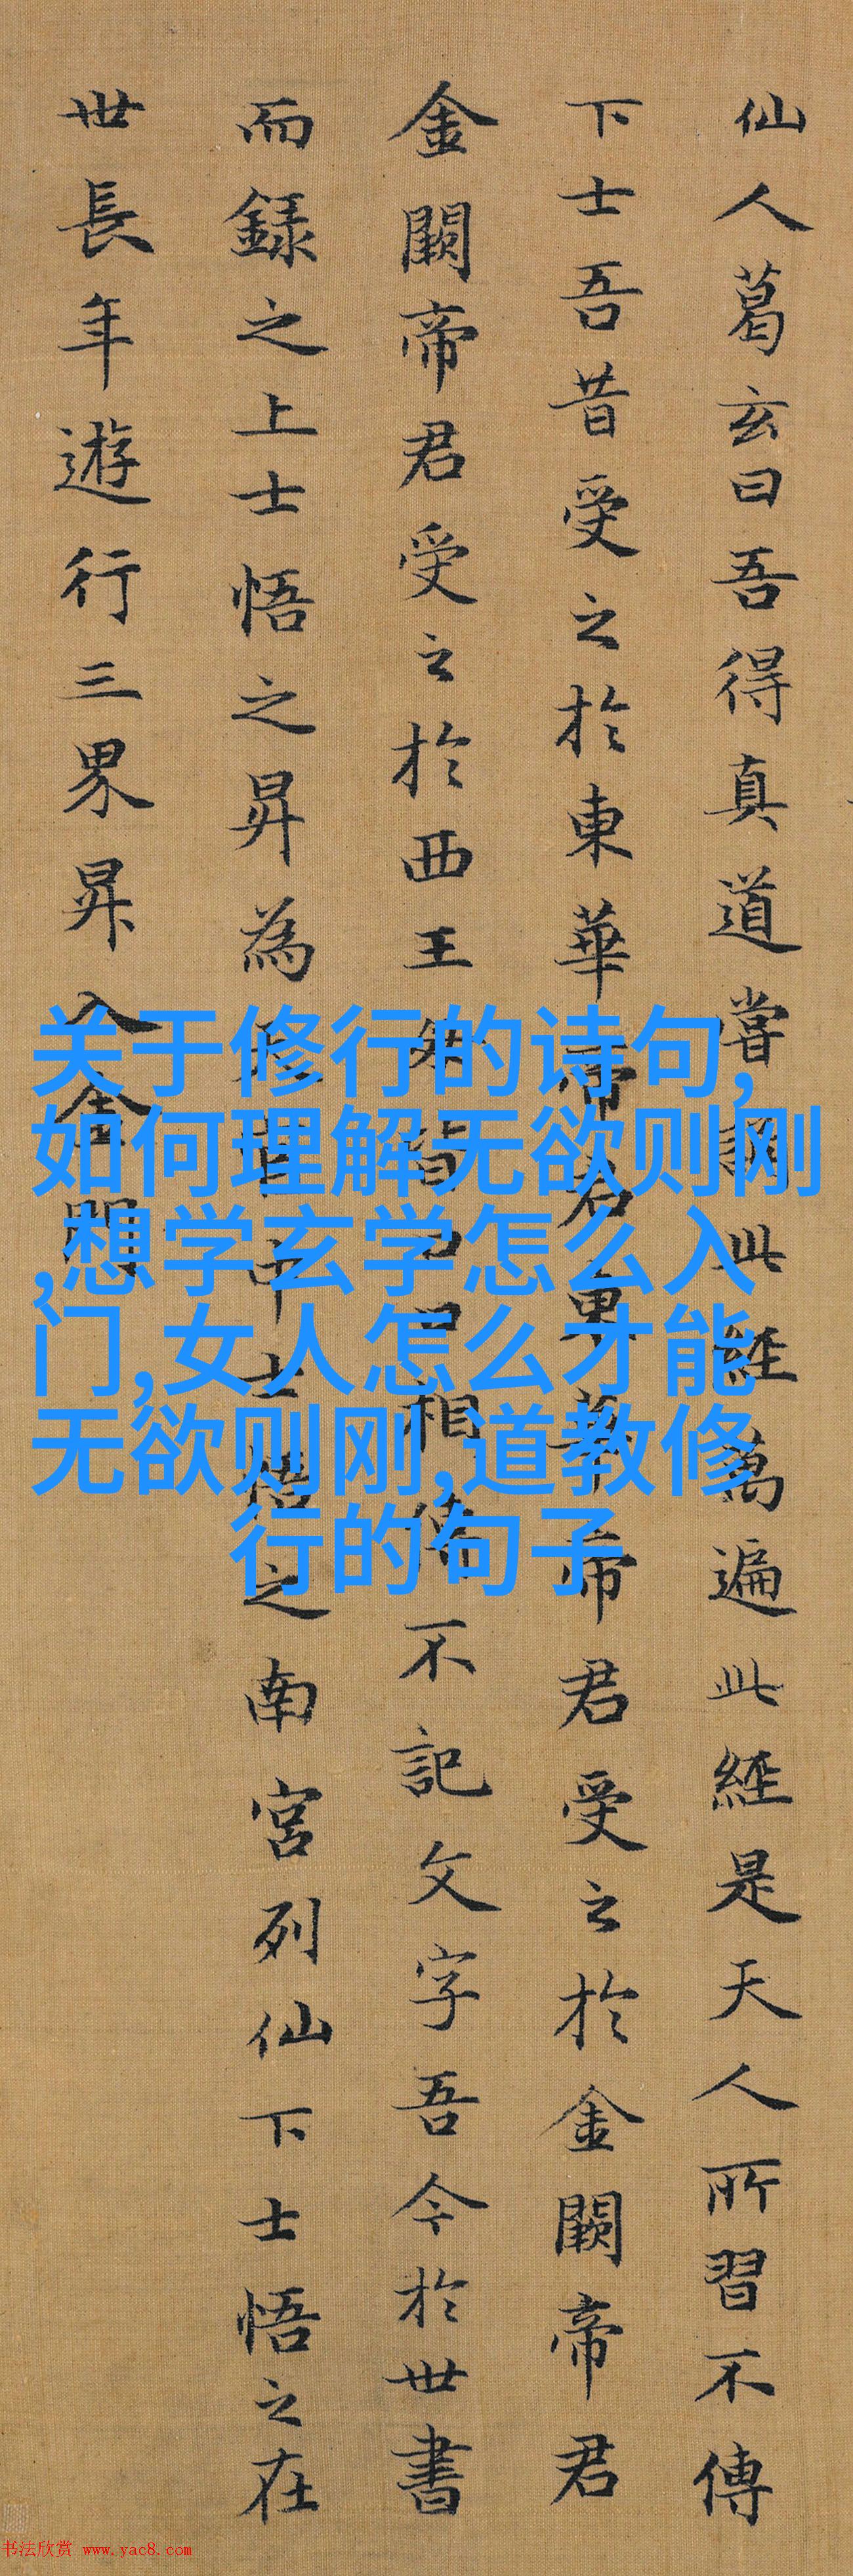 仙人葛玄曰吾得真道嘗誦此經萬遍此經是天人所習不傳
下士吾昔受之於東華帝君東華帝君受之於金闕帝君
金闕帝君受之於西王母皆口口相傳不記文字吾今於世書
而録之上士悟之昇為天官中士悟之南宮列仙下士悟之在
世長年遊行三界昇入金門
关于修行的诗句,
如何理解无欲则刚
,想学玄学怎么入
门,女人怎么才能
无欲则刚,道教修
行的句子
书法欣赏 www.yac8.com